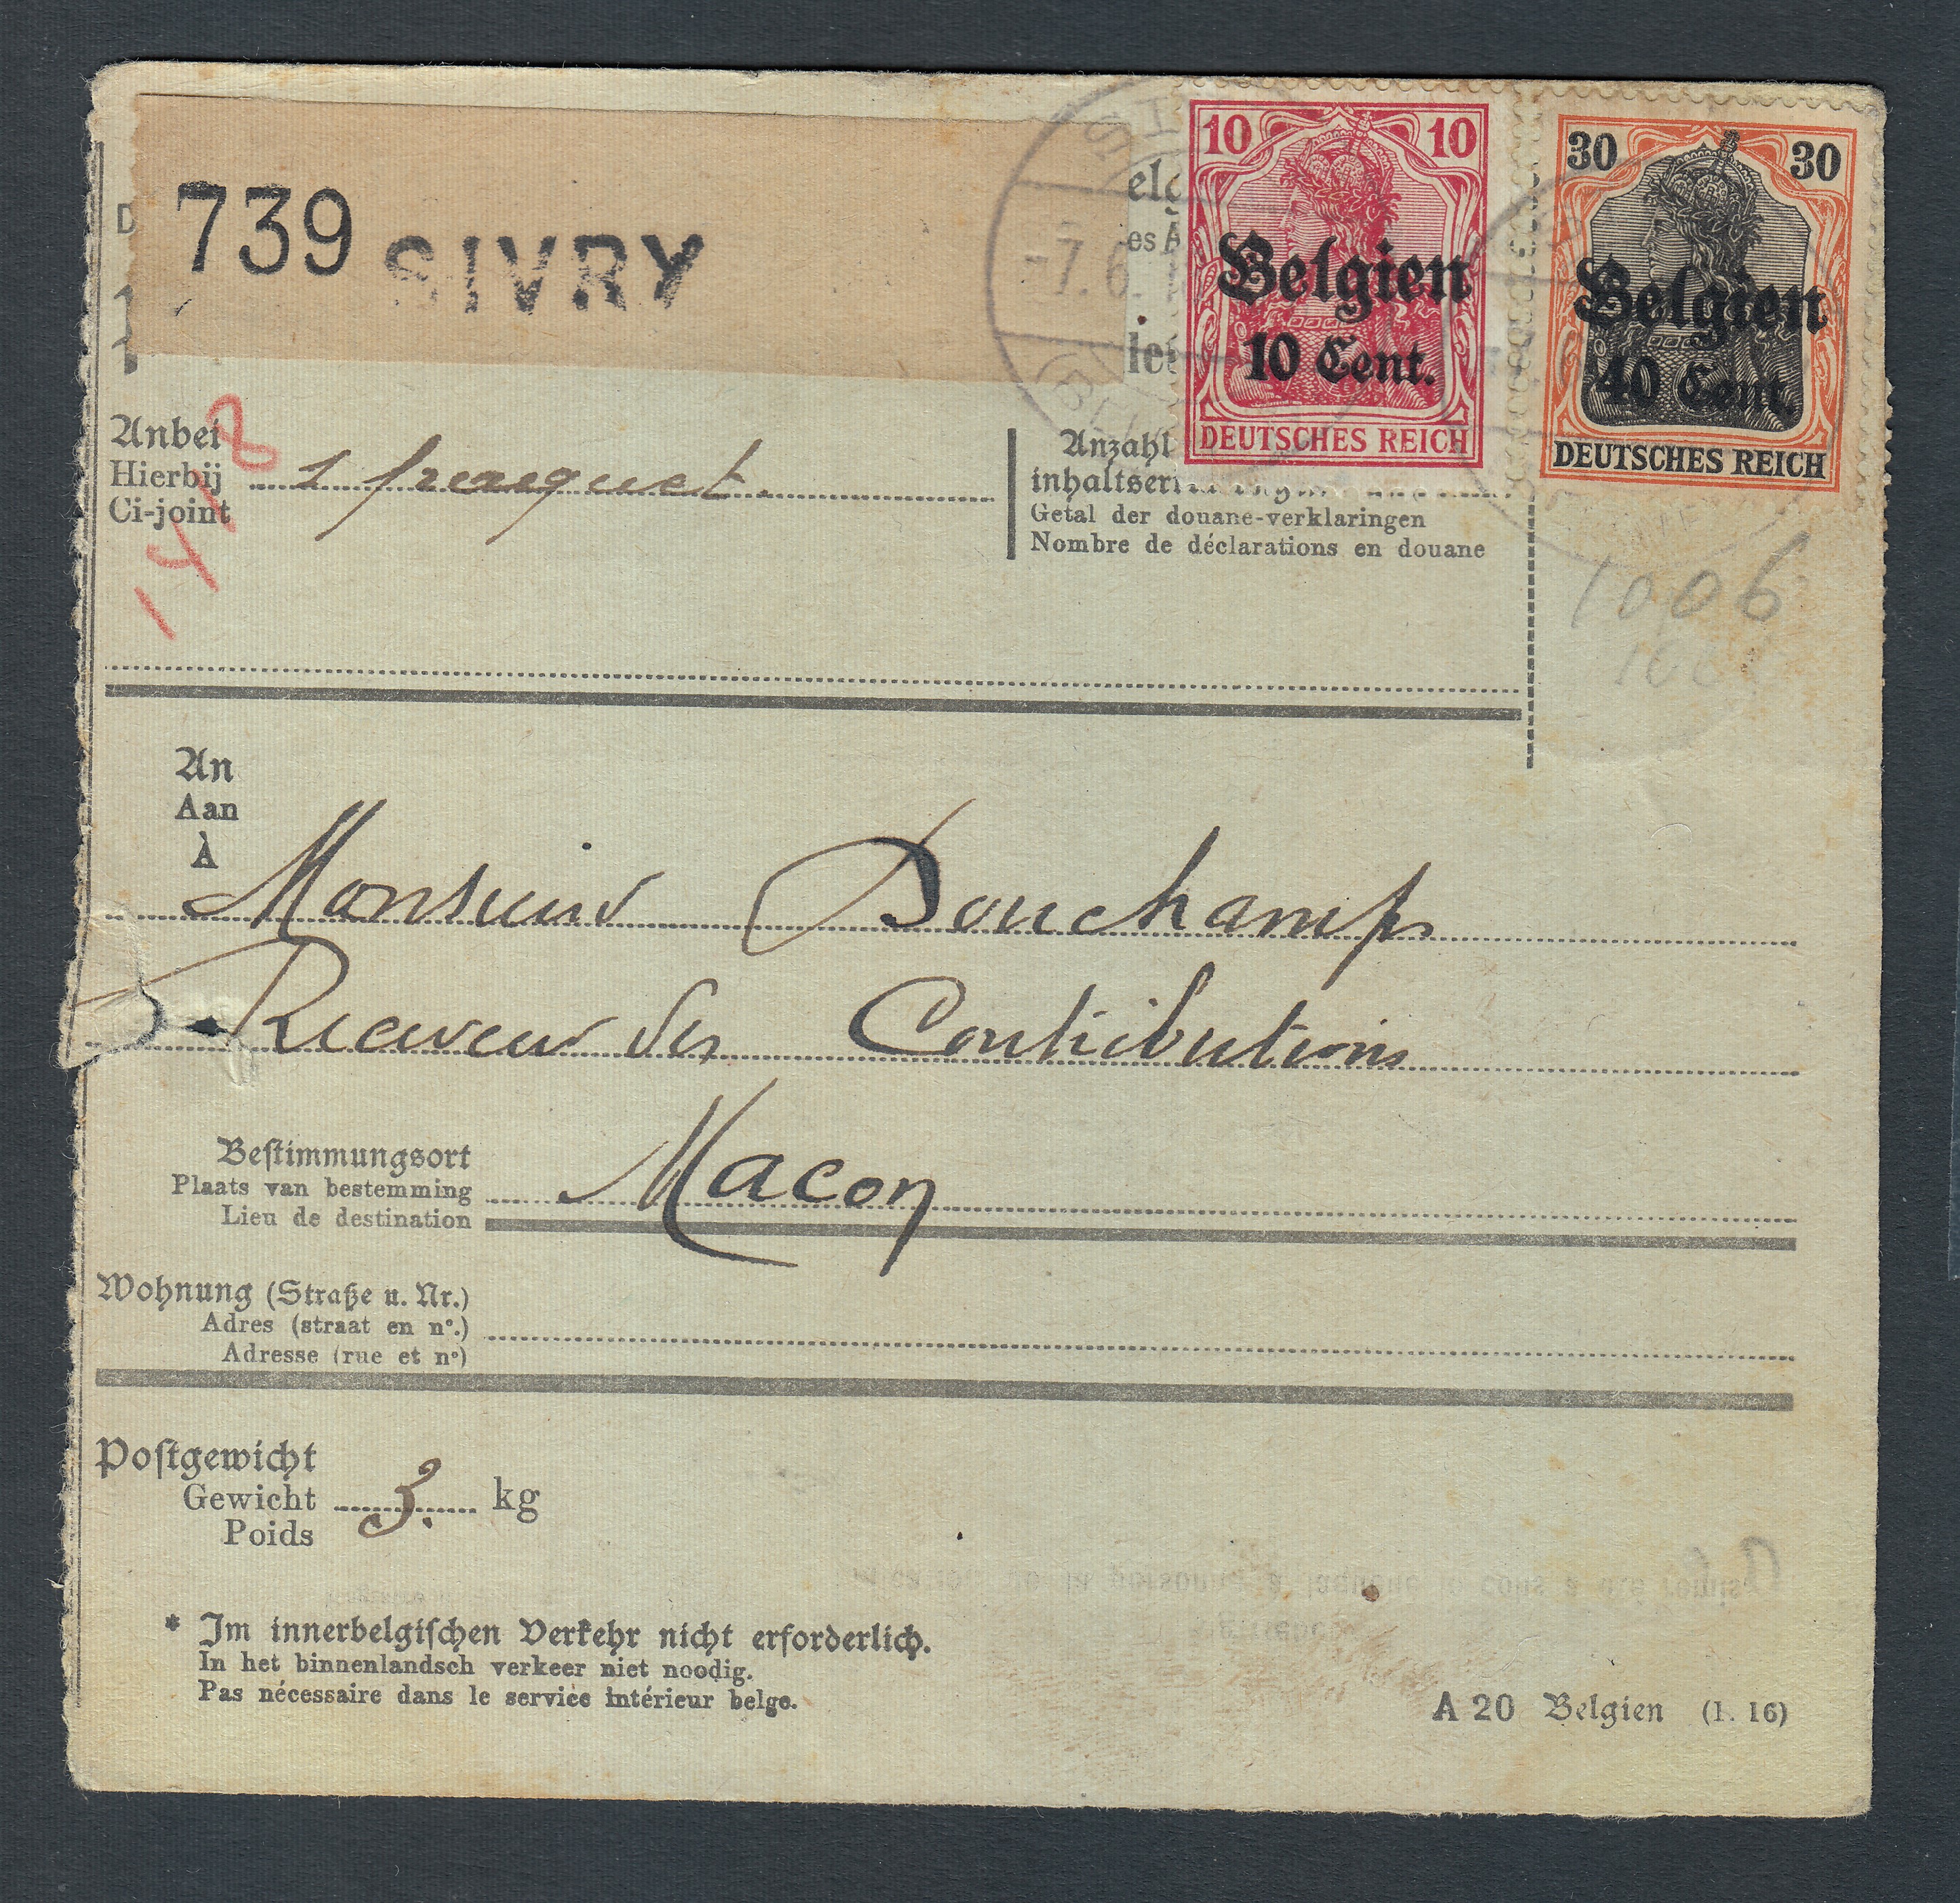 739 SIVRY
10 10
Belgien
10 Cent.
DEUTSCHES REICH
30 30
Belgien
40 Cent.
DEUTSCHES REICH
-7. 6.
Anbei
Hierbij
Ci-joint
1
Anzahl
Getal der douane-verklaringen
Nombre de déclarations en douane
1006
An
Aan
À
Monsieur Douchamps
Receveur des Contributions
Bestimmungsort
Plaats van bestemming
Lieu de destination
Macon
Wohnung (Straße u. Nr.)
Adres (straat en nº.)
Adresse (rue et nº)
Postgewicht
Gewicht 3. kg
Poids
* Im innerbelgischen Verkehr nicht erforderlich.
In het binnenlandsch verkeer niet noodig.
Pas nécessaire dans le service intérieur belge.
A 20 Belgien (1. 16)